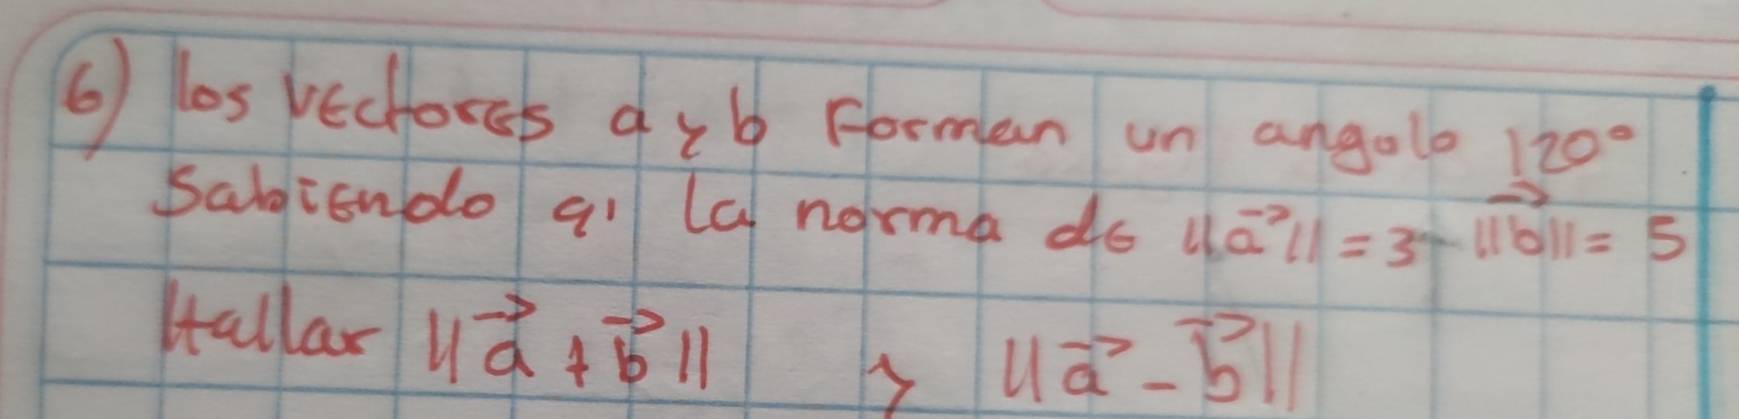 6) los vectores a y b Forman un angulo 120°
Sabiendo q' la norma de ||a⃗|| = 3 ||b⃗|| = 5
Hallar ||a⃗ + b⃗|| y ||a⃗ - b⃗||